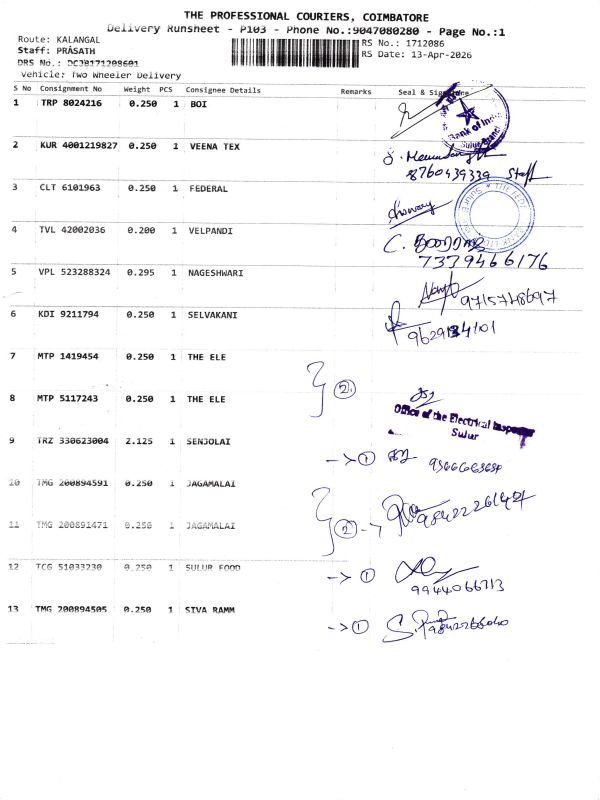 THE PROFESSIONAL COURIERS, COIMBATORE
Delivery Runsheet - P103 - Phone No.:9047080280 - Page No.:1
Route: KALANGAL
RS No.: 1712086
Staff: PRASATH
RS Date: 13-Apr-2026
DRS No.: DCJB171208601
Vehicle: Two Wheeler Delivery
S No Consignment No Weight PCS Consignee Details Remarks Seal & Signature
1 TRP 8024216 0.250 1 BOI
Bank of India
Sulur Branch
2 KUR 4001219827 0.250 1 VEENA TEX
8760439339 Staff
3 CLT 6101963 0.250 1 FEDERAL
4 TVL 42002036 0.200 1 VELPANDI
7339466176
5 VPL 523288324 0.295 1 NAGESHWARI
9715748697
6 KDI 9211794 0.250 1 SELVAKANI
7 MTP 1419454 0.250 1 THE ELE
2
8 MTP 5117243 0.250 1 THE ELE
Office of the Electrical Inspector
Sulur
9 TRZ 330623004 2.125 1 SENJOLAI
1
10 TMG 200894591 0.250 1 JAGAMALAI
2
11 TMG 200891471 0.250 1 JAGAMALAI
12 TCG 51033230 0.250 1 SULUR FOOD
1
9944066713
13 TMG 200894505 0.250 1 SIVA RAMM
1